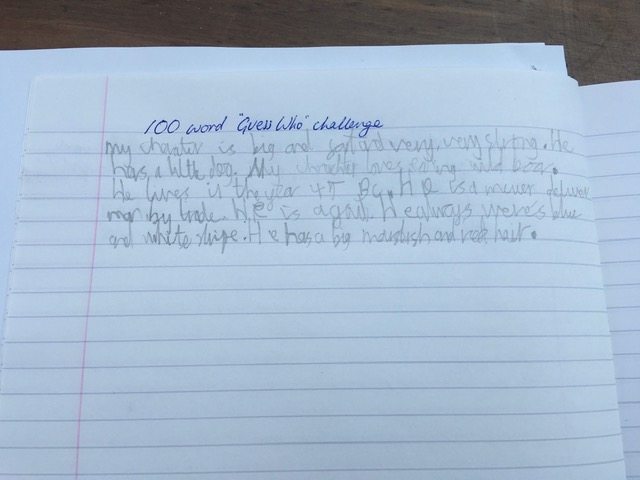 100 word "Guess Who" challenge
my charitir is big and and very, very strong. He
has a little dog. My charicter loves eting wild boar.
He lives in the year 45 BC. He is a mener deliver
man by trade. He is a gaul. He always were's blue
and white stripe. He has a big mousitish and red hair.